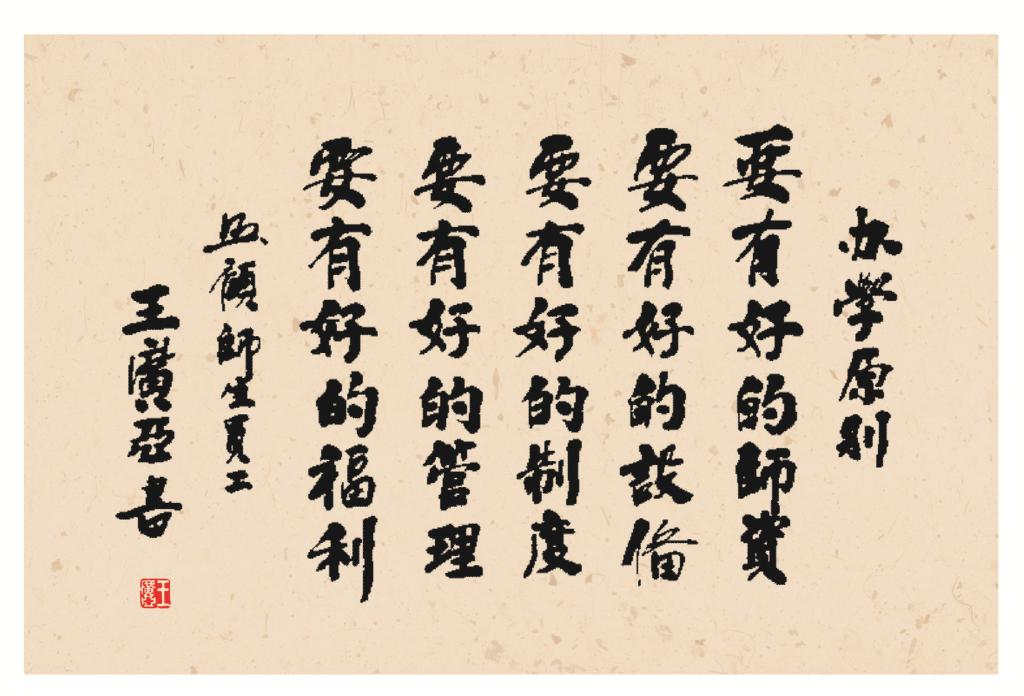 办學原则
要有好的師資
要有好的設備
要有好的制度
要有好的管理
要有好的福利
照顧師生員工
王廣亞書
王廣亞